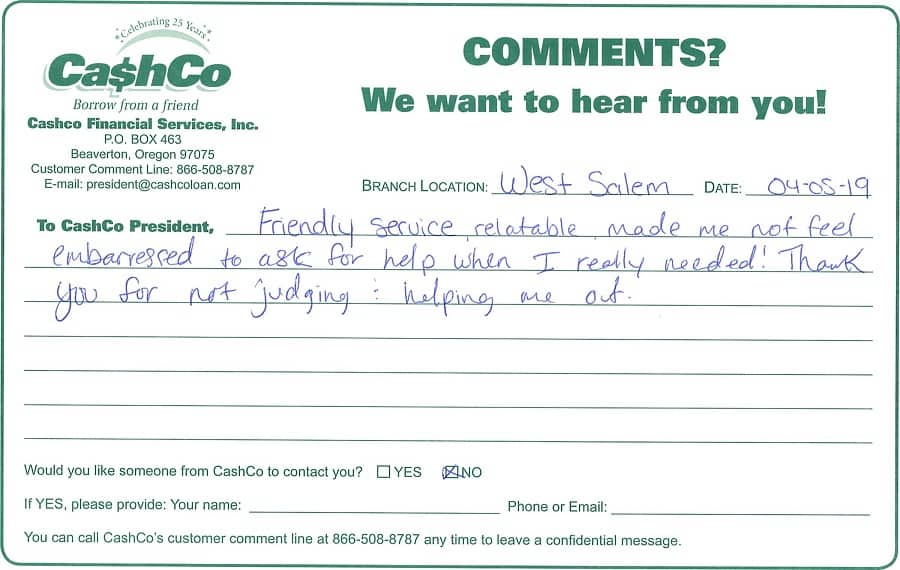 *Celebrating 25 Years*
Ca$hCo
Borrow from a friend
Cashco Financial Services, Inc.
P.O. BOX 463
Beaverton, Oregon 97075
Customer Comment Line: 866-508-8787
E-mail: president@cashcoloan.com
COMMENTS?
We want to hear from you!
BRANCH LOCATION: West Salem DATE: 04-05-19
To CashCo President, Friendly service, relatable, made me not feel
embarressed to ask for help when I really needed! Thank
you for not judging : helping me out.
Would you like someone from CashCo to contact you? YES NO
If YES, please provide: Your name: Phone or Email:
You can call CashCo's customer comment line at 866-508-8787 any time to leave a confidential message.